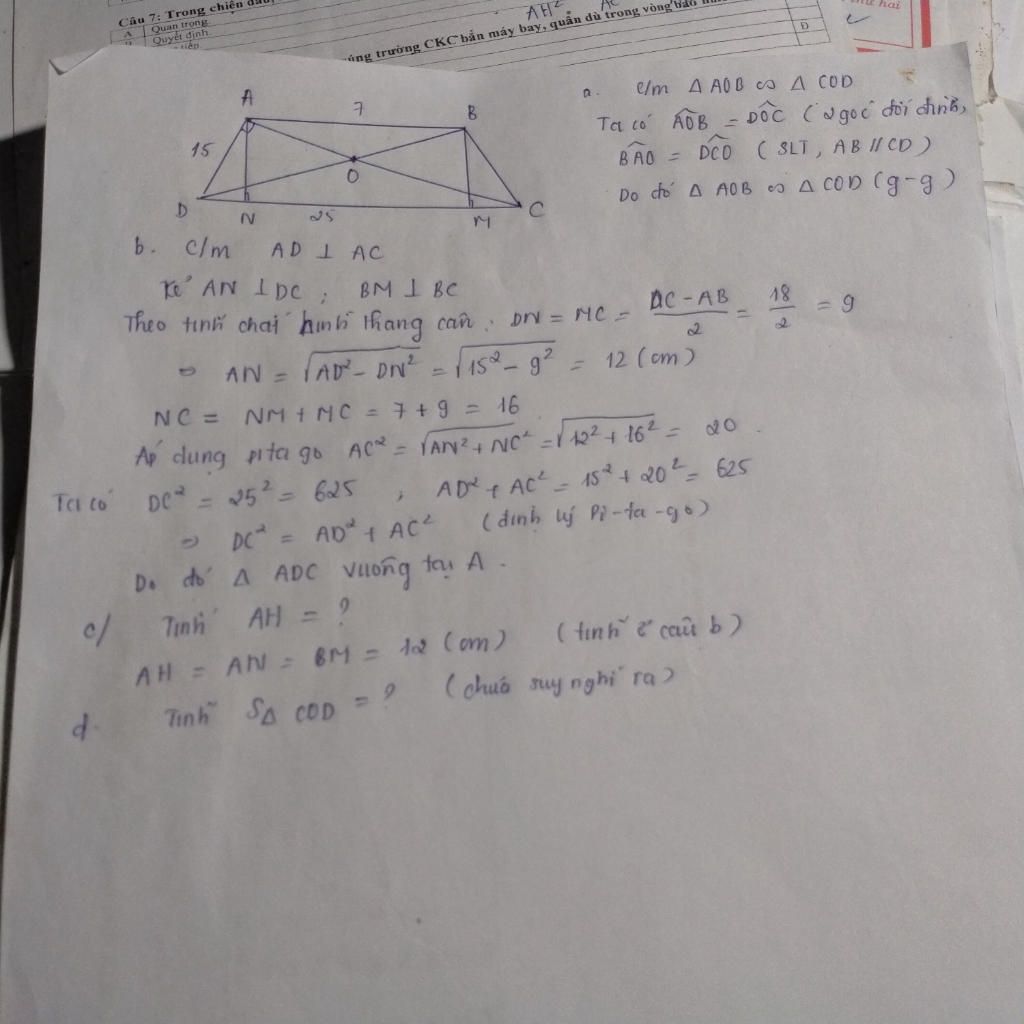 Câu 7: Trong chiến đấu,
A Quan trọng.
B Quyết định.
AH²
AC
trường CKC bắn máy bay, quân dù trong vòng bao
Đ
hai
A
7
B
15
O
D
N
25
M
C
a. c/m Δ AOB ∽ Δ COD
Ta có AOB = DOC ( 2 góc đối đỉnh,
BAO = DCO ( SLT, AB // CD )
Do đó Δ AOB ∽ Δ COD ( g-g )
b. C/m AD ⊥ AC
Kẻ AN ⊥ DC ; BM ⊥ BC
Theo tính chất hình thang cân : DN = MC = (DC - AB)/2 = 18/2 = 9
⇒ AN = √(AD² - DN²) = √(15² - 9²) = 12 (cm)
NC = NM + MC = 7 + 9 = 16
Áp dụng pitago AC² = √(AN² + NC²) = √(12² + 16²) = 20 .
Ta có DC² = 25² = 625 , AD² + AC² = 15² + 20² = 625
⇒ DC² = AD² + AC² (định lý Pi-ta-go)
Do đó Δ ADC vuông tại A .
c/ Tính AH = ?
AH = AN = BM = 12 (cm) ( tính ở câu b )
d. Tính SΔ COD = ? ( chưa suy nghĩ ra )